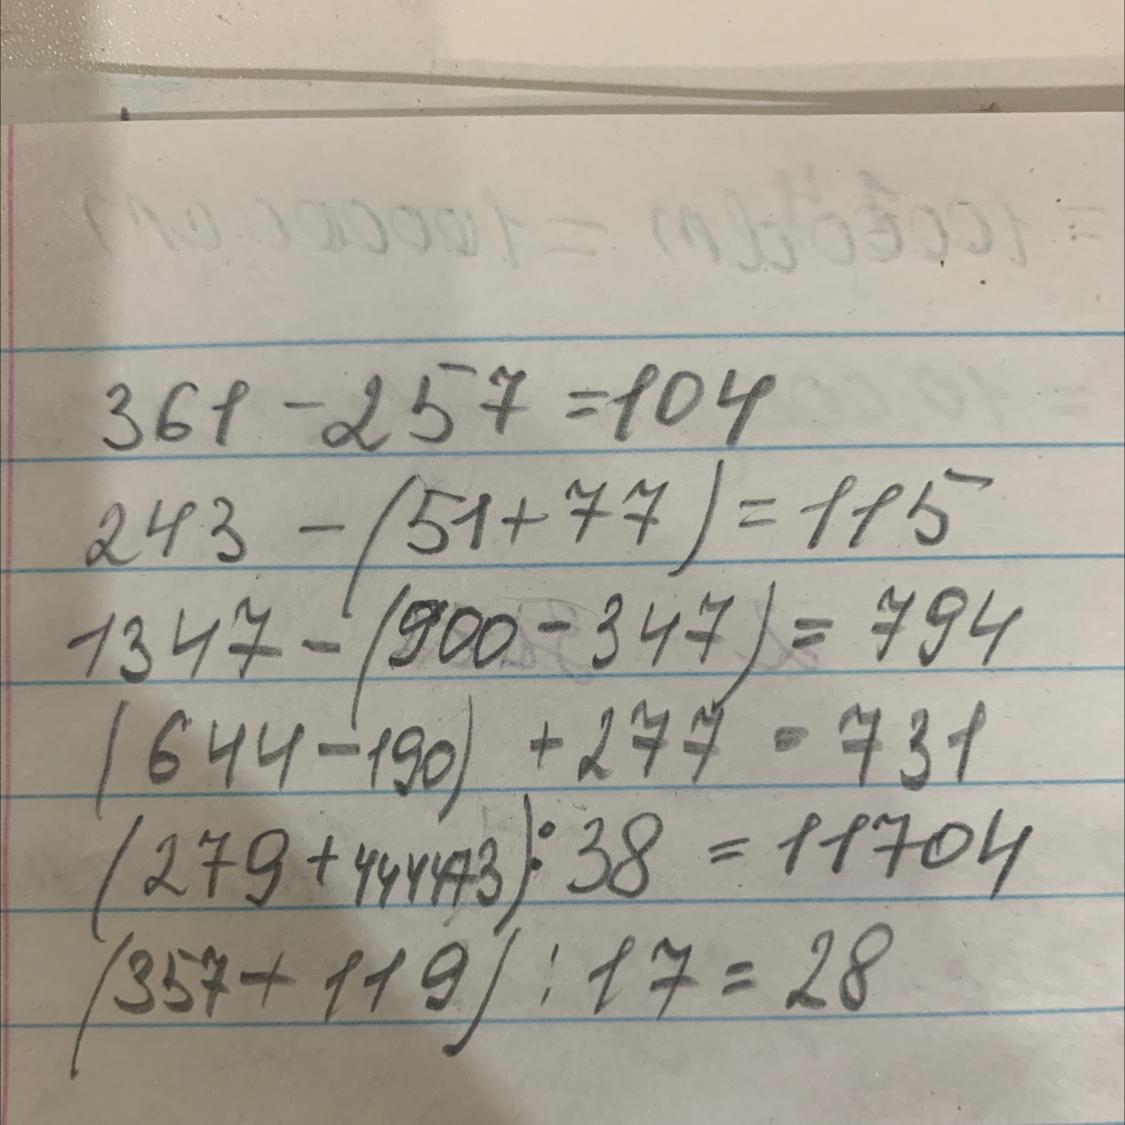 361 - 257 = 104
243 - (51 + 77) = 115
1347 - (900 - 347) = 794
(644 - 190) + 277 = 731
(279 + 444473) : 38 = 11704
(357 + 119) : 17 = 28